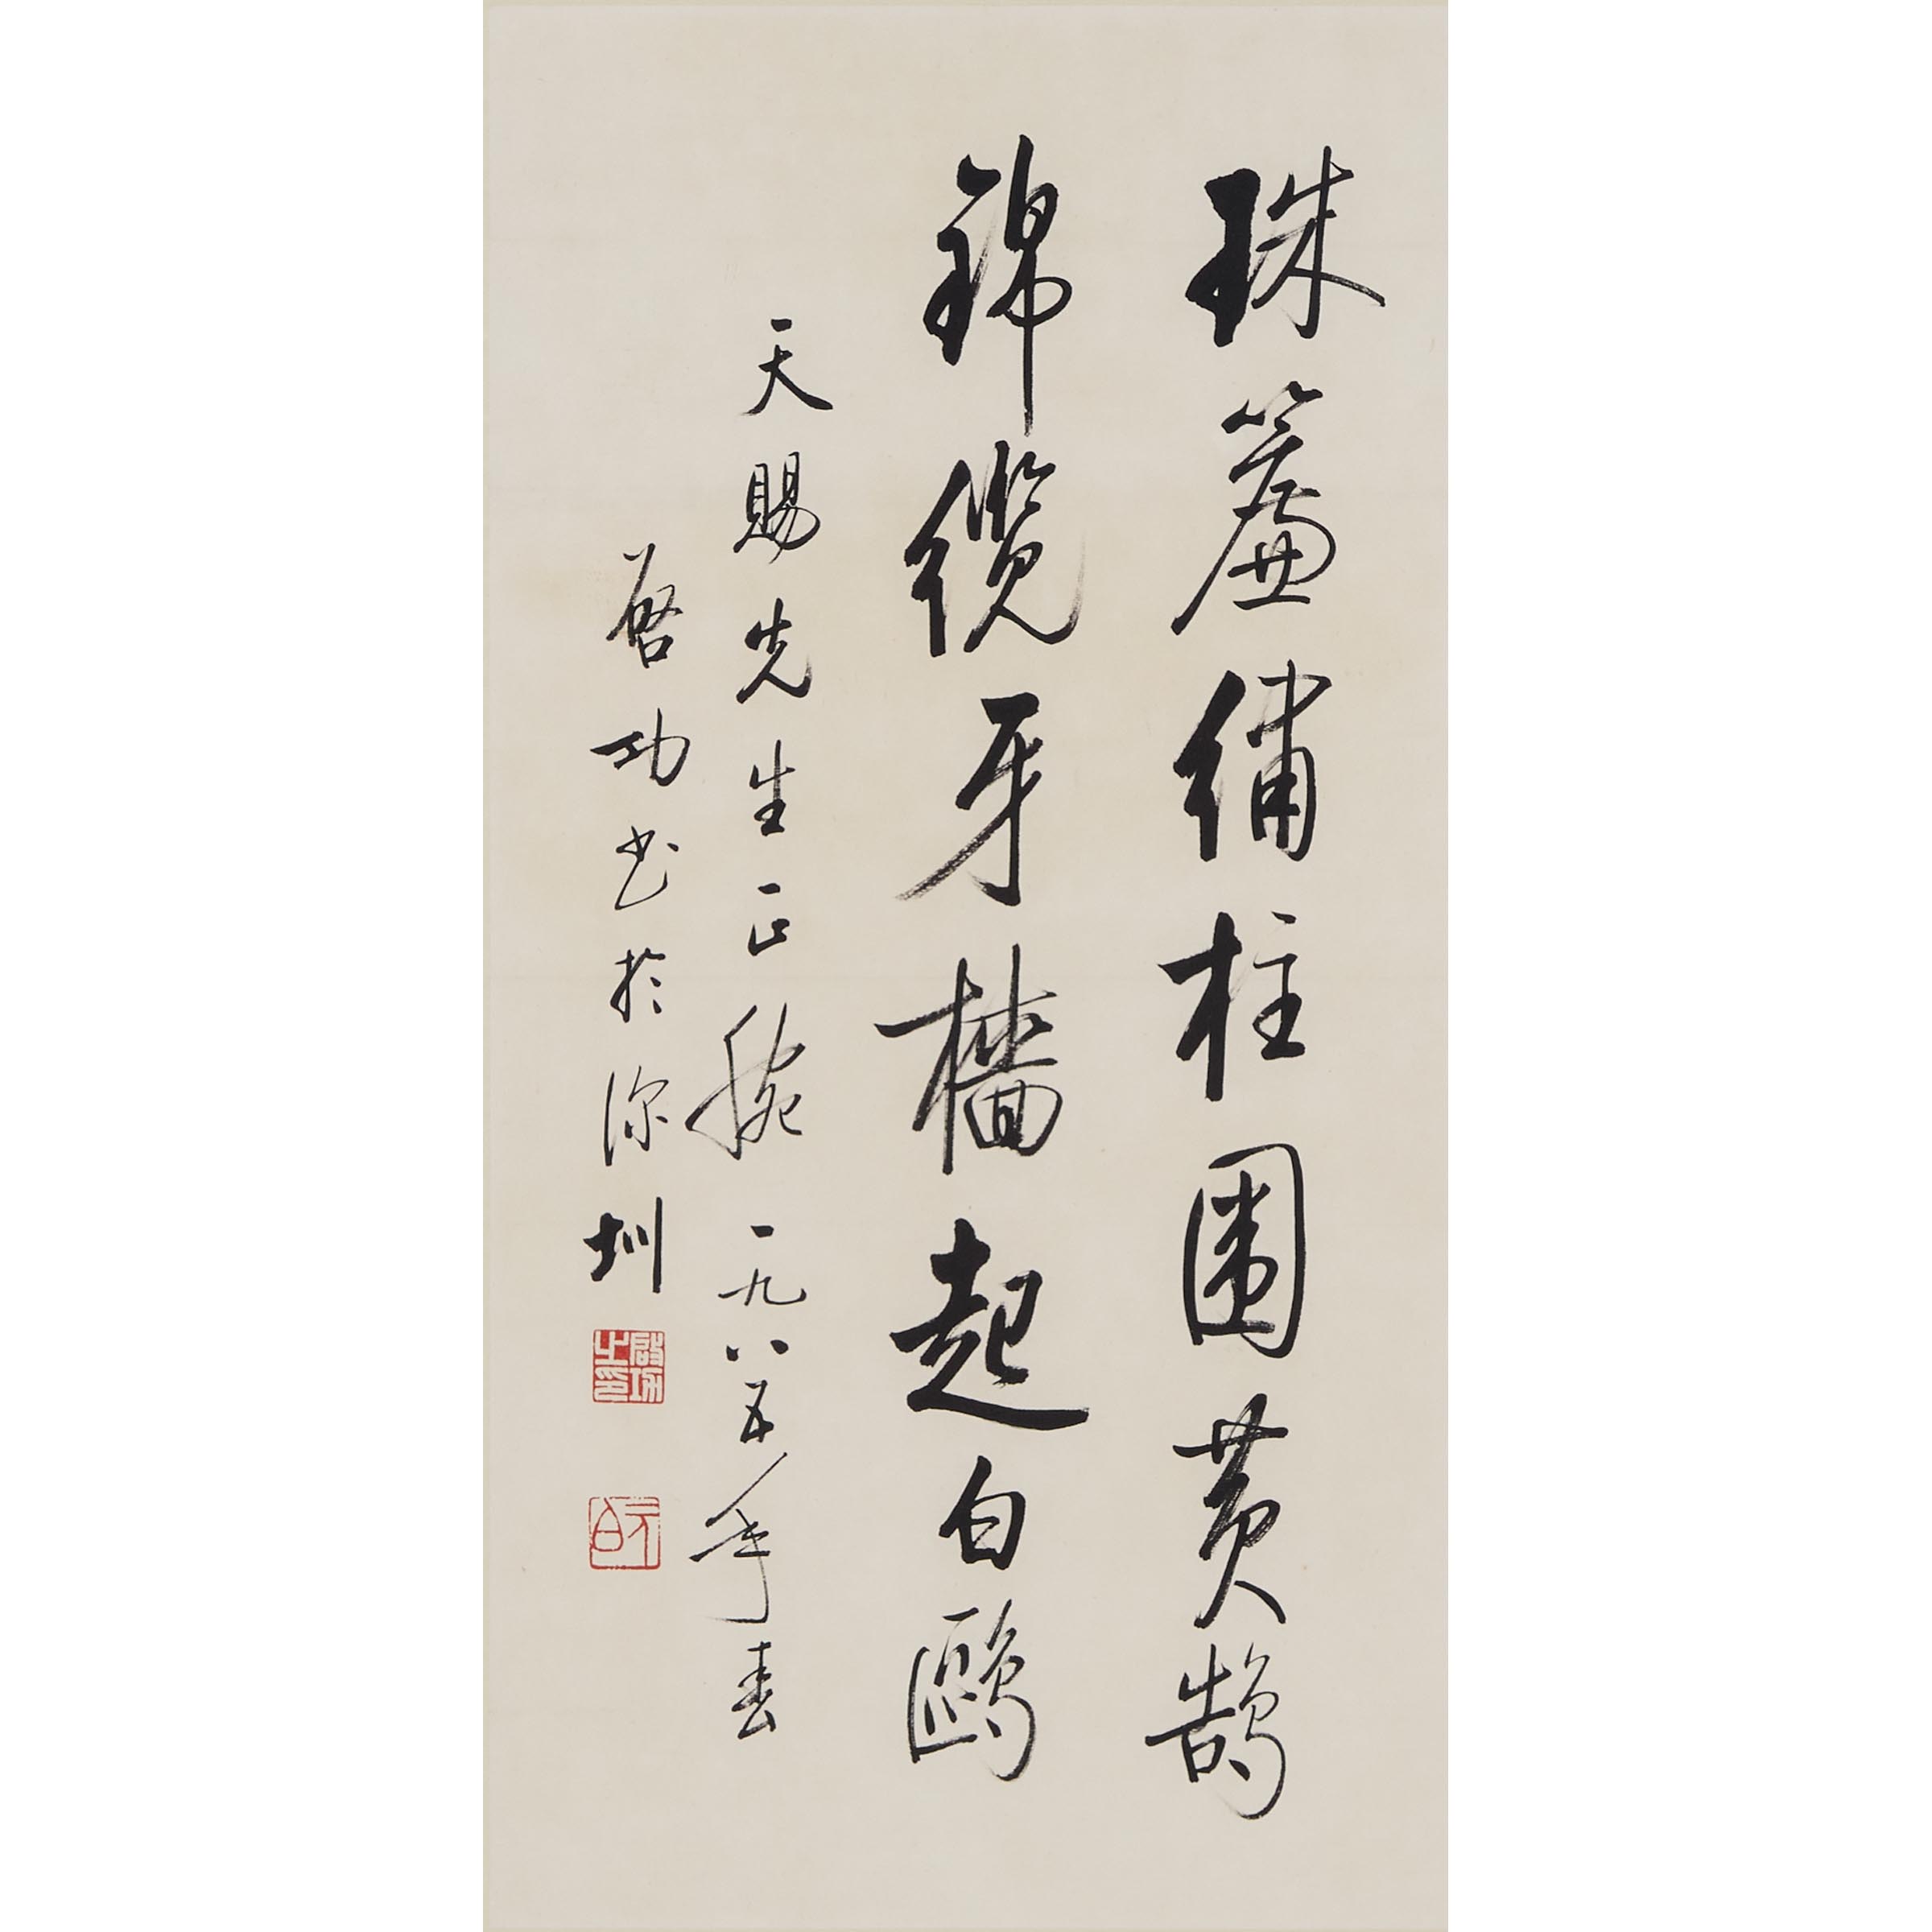 珠簾繡柱圍黄鵠
錦纜牙檣起白鷗
天賜先生正腕 一九八五年春
啓功书於深圳
啟功之印
元白